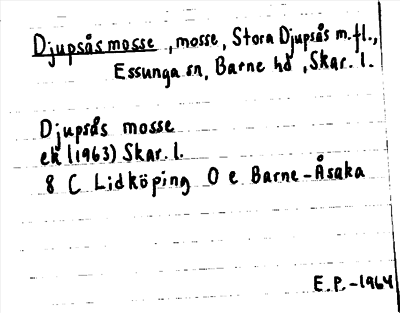 Djupsåsmosse, mosse, Stora Djupsås m.fl.,
Essunga sn, Barne hd, Skar. l.
Djupsås mosse
ek (1963) Skar. l.
8 C Lidköping O e Barne-Åsaka
E.P.-1964